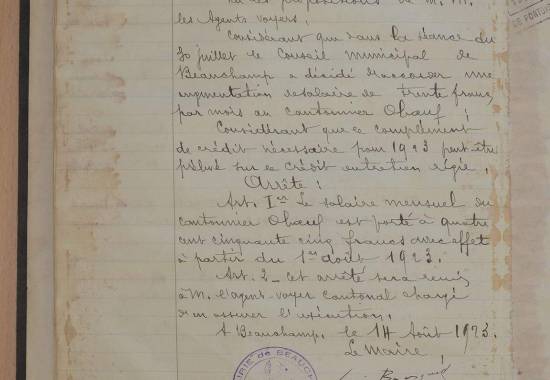 les propositions de M. M.
les Agents voyers,
Considérant que dans la séance du
30 juillet le Conseil Municipal de
Beauchamp a décidé d'accorder une
augmentation de salaire de trente francs
par mois au cantonnier Obœuf ;
Considérant que ce complément
de crédit nécessaire pour 1923 peut être
prélevé sur le crédit entretien régie.
Arrête :
Art. Ier Le salaire mensuel du
cantonnier Obœuf est porté à quatre
cent cinquante cinq francs avec effet
à partir du 1er août 1923.
Art. 2 - Cet arrêté sera remis
à M. l'agent voyer cantonal chargé
d'en assurer l'exécution.
A Beauchamp, le 14 Août 1923.
Le Maire,
MAIRIE de BEAUCH